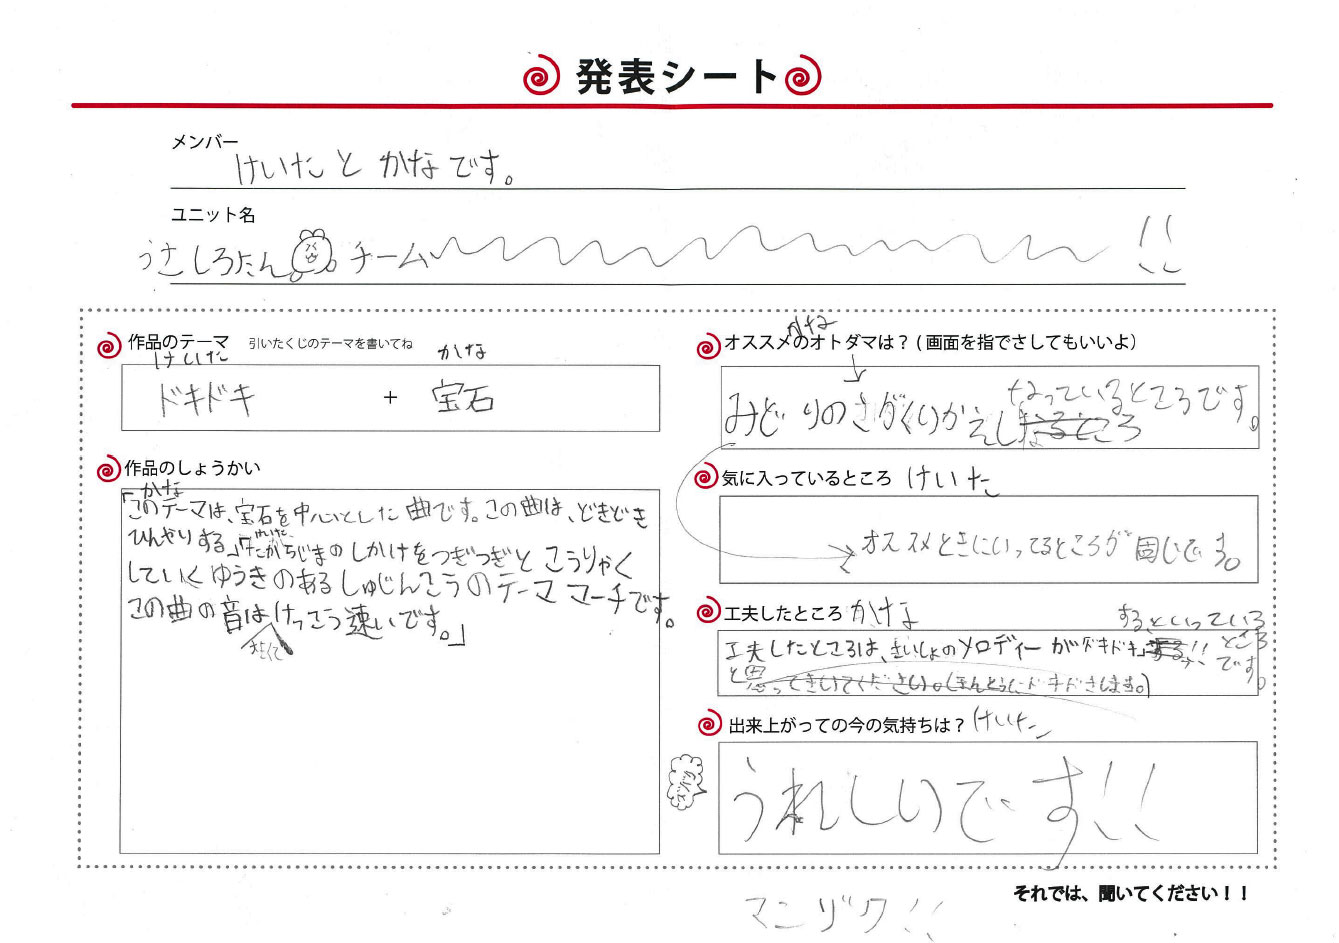 発表シート
メンバー
けいたと かなです。
ユニット名
うさしろたん チーム !!
作品のテーマ 引いたくじのテーマを書いてね
けいた かな
ドキドキ + 宝石
作品のしょうかい
かな
「このテーマは、宝石を中心とした曲です。この曲は、どきどき
ひんやりする」
けいた
「たからじまのしかけをつぎつぎと こうりゃく
していくゆうきのあるしゅじんこうのテーママーチです。
この曲の音はけっこう速いです。」
大きくて
オススメのオトダマは？（画面を指でさしてもいいよ）
かな
みどりの がくりかえし
なっているところです。
気に入っているところ けいた
オススメときにいってるところが同じです。
工夫したところ かな
工夫したところは、さいしょのメロディーがドキドキ
するといっている
ところ
です。
と思ってきいてください。(ほんとうにドキドキします。)
出来上がっての今の気持ちは？ けいた
うれしいです!!
それでは、聞いてください！！
マンゾク!!